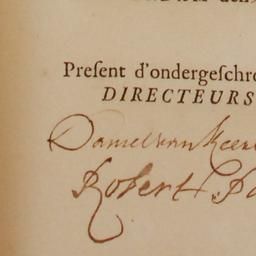 Preſent d'ondergeſchre
DIRECTEURS
Daniel van
Robert